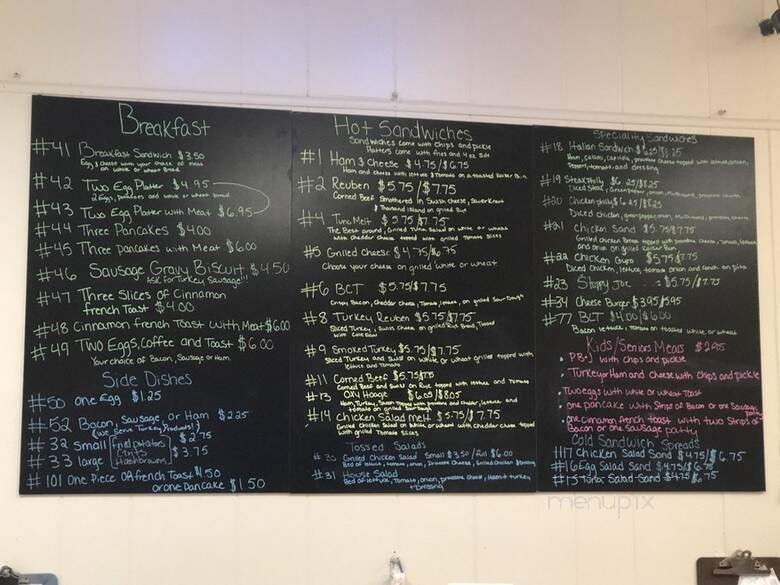 Breakfast
#41 Breakfast Sandwich $3.50
Egg & cheese with your choice of meat
on white or wheat Bread
#42 Two Egg Platter $4.95
2 Eggs, potatoes and white or wheat bread
#43 Two Egg Platter with Meat $6.95
#44 Three Pancakes $4.00
#45 Three pancakes with Meat $6.00
#46 Sausage Gravy Biscuit, $4.50
Ask for Turkey Sausage!!!
#47 Three Slices of Cinnamon
french Toast $4.00
#48 Cinnamon french Toast with Meat $6.00
#49 TWO Eggs, Coffee and Toast $6.00
Your choice of Bacon, Sausage or Ham
Side Dishes
#50 One Egg $1.25
#52 Bacon, Sausage, or Ham $2.25
(We Serve Turkey Products!)
#32 Small fried potatoes $2.75
#33 large Hashbrowns $3.75
#101 One Piece of french Toast $1.50
or one Pancake $1.50
Hot Sandwiches
Sandwiches come with chips and pickle
Platters come with fries and 4 oz side
#1 Ham & Cheese $4.75/$6.75
Ham and cheese with lettuce & Tomato on a toasted Kaiser Bun
#2 Reuben $5.75/$7.75
Corned Beef Smothered in Swiss cheese, Sauerkraut
& Thousand island on grilled Rye
#4 Tuna Melt $5.75/7.75
The Best around, Grilled Tuna Salad on white or wheat
with cheddar cheese topped with grilled Tomato slices
#5 Grilled Cheese $4.75/$6.75
Choose your cheese on grilled white or wheat
#6 BCT $5.75/$7.75
Crispy Bacon, Cheddar cheese, Tomato, lettuce, on grilled Sour Dough
#8 Turkey Reuben $5.75/$7.75
Sliced Turkey, Swiss cheese on grilled Rye Bread, Topped
with Cole slaw
#9 Smoked Turkey $5.75/$7.75
Sliced Turkey and swiss on white or wheat grilled topped with
lettuce and Tomato
#11 Corned Beef $5.75/
Corned Beef and Swiss on Rye topped with lettuce and Tomato
#13 Oxy Hoagie $6.05/$8.05
Ham, Turkey, topped with provolone and lettuce and
tomato on grilled Sourdough
#14 Chicken Salad melt $5.75/$7.75
Grilled Chicken Salad on white or wheat with cheddar cheese topped
with grilled Tomato Slices
Tossed Salads
#30 Grilled Chicken Salad Small $3.50/Full $6.00
Bed of lettuce, tomato, onion, Provolone Cheese, Grilled Chicken & Dressing
#31 House Salad
Bed of lettuce, Tomato, onion, provolone cheese, Ham & turkey
+ Dressing
Speciality Sandwiches
#18 Italian Sandwich $6.25/$8.25
Ham, salami, capicola, provolone cheese topped with lettuce, onion,
Peppers, tomato, and dressing
#19 Steak Philly $6.25/$8.25
Diced Steak, Green pepper, onion, mushrooms, provolone cheese
#20 Chicken philly $6.25/$8.25
Diced chicken, green pepper, onion, mushrooms, provolone cheese
#21 Chicken Sand $5.75/$7.75
Grilled chicken Breast topped with provolone cheese, Tomato, lettuce
and onion on grilled Kaiser Bun
#22 Chicken Gyro $5.75/$7.75
Diced Chicken, lettuce, tomato onion and ranch on pita
#23 Sloppy Joe $5.75/$7.75
#34 Cheese Burger $3.95/5.95
#77 BLT $4.00/$6.00
Bacon lettuce, tomato on toasted white or wheat
Kids/Seniors Meals $2.95
• PB+J with chips and pickle
• Turkey or Ham and cheese with chips and pickle
• Two eggs with white or wheat Toast
• one pancake with Strips of Bacon or one Sausage
• one cinnamon french toast with two Strips of
Bacon or one Sausage patty
Cold Sandwich Spreads
#17 Chicken Salad Sand $4.75/$6.75
#16 Egg Salad Sand $4.75/$6.75
#15 Tuna Salad Sand $4.75/6.75
menupix